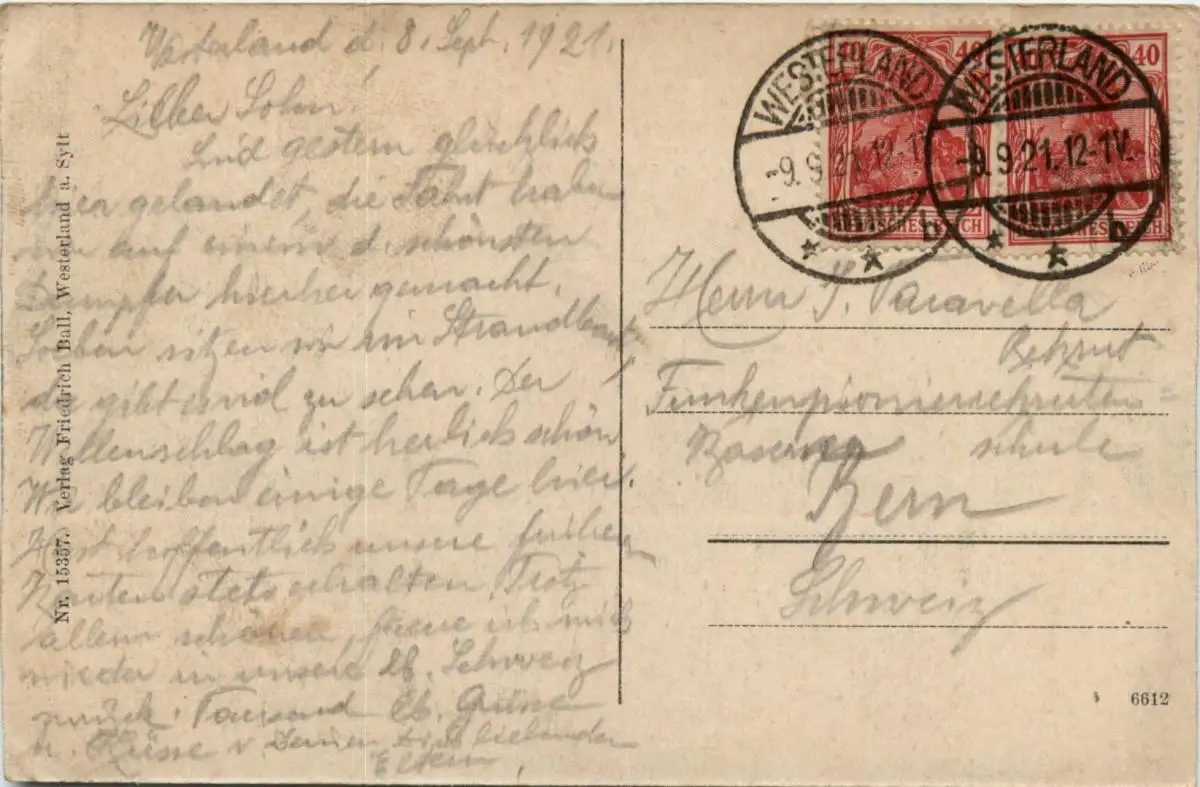 Westerland d. 8. Sept. 1921.
Lieber Sohn!
Sind gestern glücklich
hier gelandet, die Fahrt haben
wir auf einem d. schönsten
Dampfer hierher gemacht.
Soeben sitzen wir im Strandkorb,
da gibt und zu sehen. Der
Wellenschlag ist herlich schön
Wir bleiben einige Tage hier.
Hast hoffentlich unsere frühern
Karten stets erhalten. Trotz
allem schönen, freue ich mich
wieder in unsere lb. Schweiz
zurück. Tausend lb. Grüsse
u. Küsse v. Deinen Dich liebenden
Eltern.
Nr. 15357. Verlag Friedrich Ball, Westerland a. Sylt
40 40
DEUTSCHES REICH
WESTERLAND
-9.9.21.12-1V.
b
WESTERLAND
-9.9.21.12-1V.
b
Herrn J. Paravella
Rekrut
Funkenpionierrekruten=
Kaserne schule
Bern
Schweiz
6612